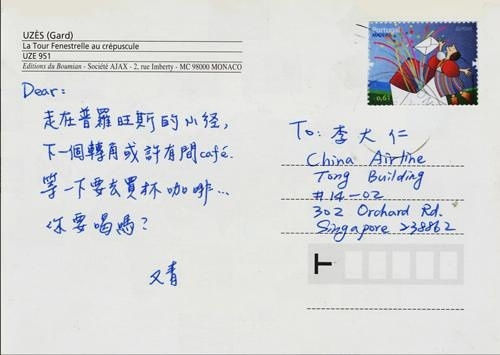 UZÈS (Gard)
La Tour Fenestrelle au crépuscule
UZE 951
Editions du Boumian - Société AJAX - 2, rue Imberty - MC 98000 MONACO
Dear:
走在普羅旺斯的小径,
下一個轉角或許有間café.
等一下要去買杯咖啡...
你要喝嗎?
又青
Portugal
0,61
To: 李大仁
China Airline
Tong Building
#14-02
302 Orchard Rd.
Singapore 238862